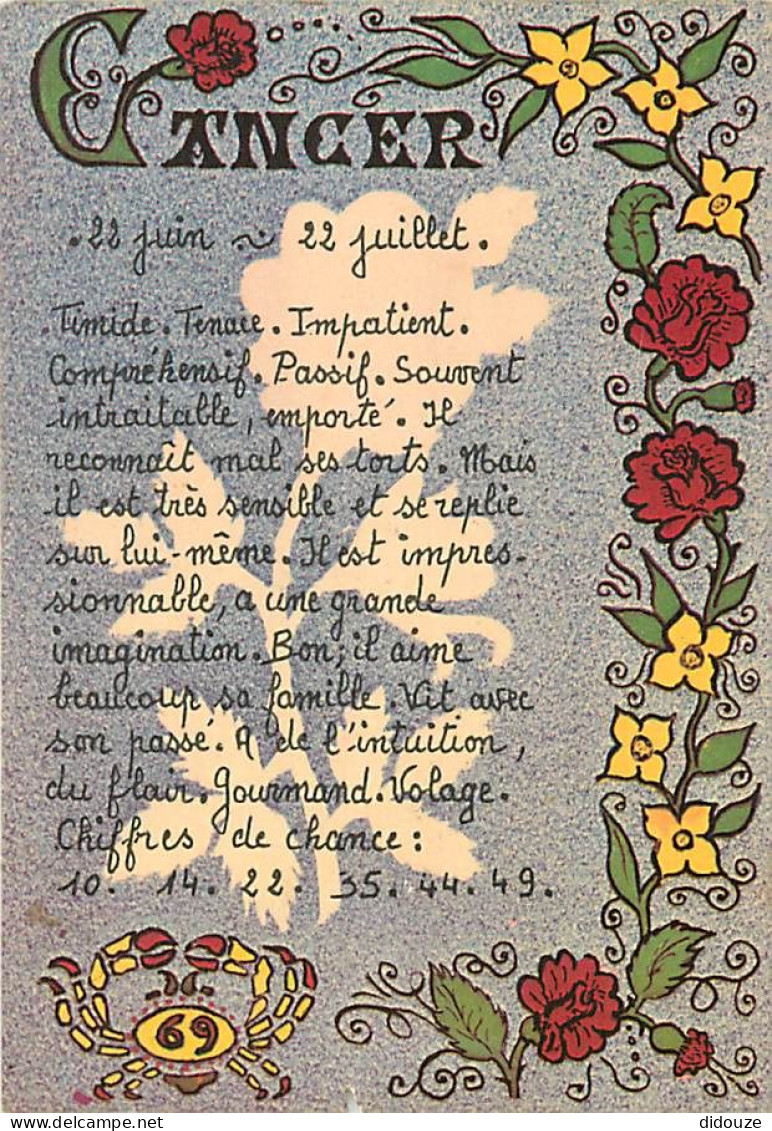 CANCER
.22 juin ~ 22 juillet.
Timide. Tenace. Impatient.
Compréhensif. Passif. Souvent
intraitable, emporté. Il
reconnaît mal ses torts. Mais
il est très sensible et se replie
sur lui-même. Il est impres-
sionnable, a une grande
imagination. Bon; il aime
beaucoup sa famille. Vit avec
son passé. A de l'intuition,
du flair. Gourmand. Volage.
Chiffres de chance:
10. 14. 22. 35. 44. 49.
69
didouze